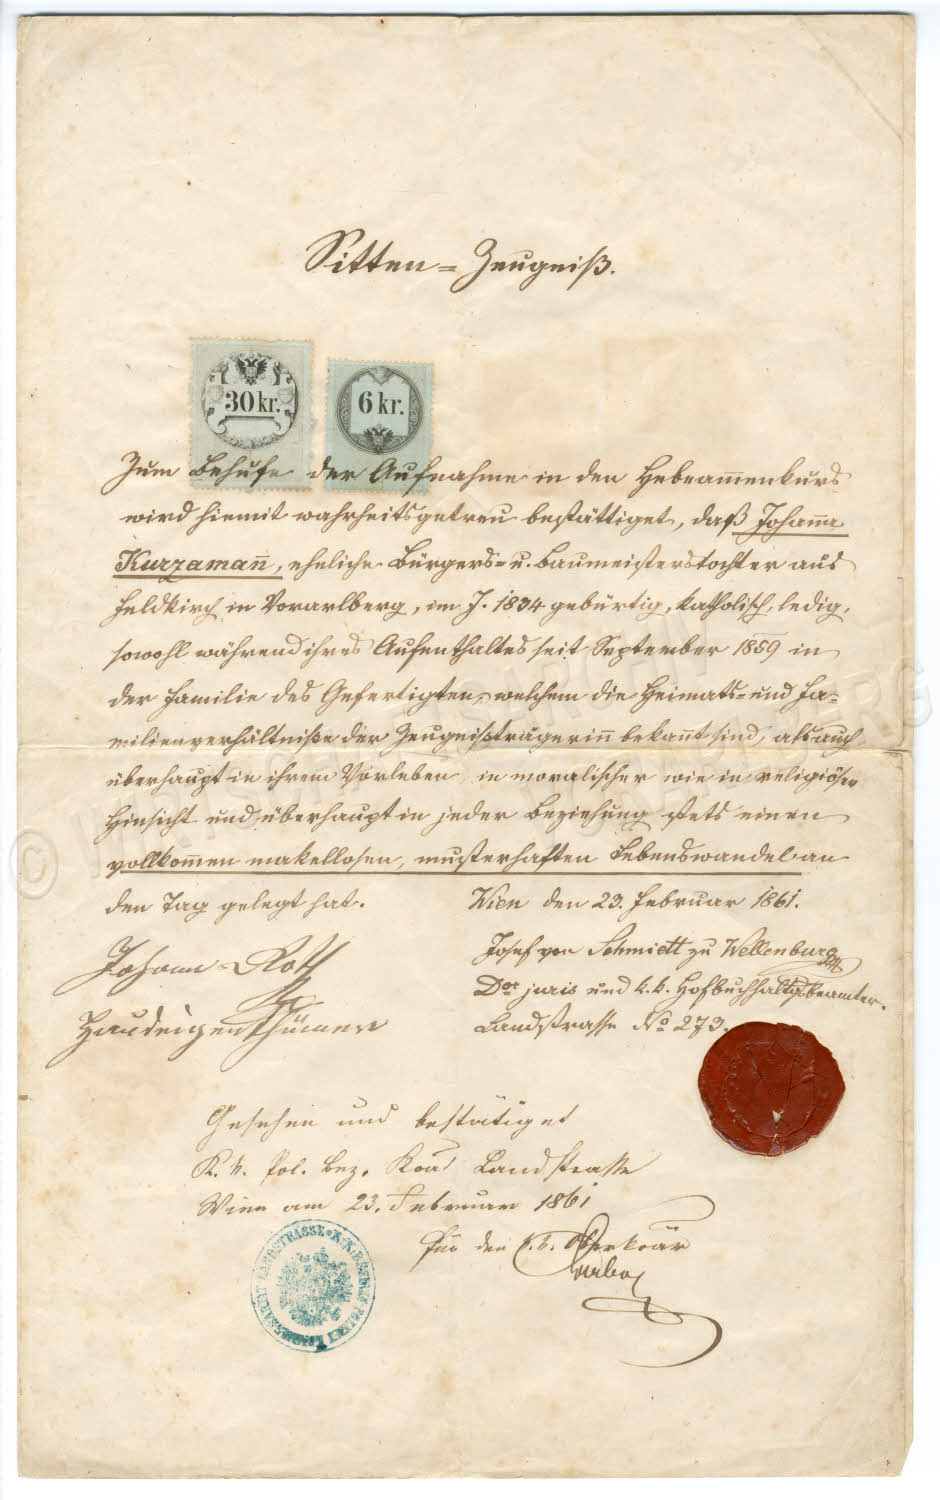 Sitten-Zeugniß.
30 kr.
6 kr.
Zum Behufe der Aufnahme in den Hebeam̄enkurs
wird hiemit wahrheitsgetreu bestättiget, daß Johan̄a
Kurzaman̄, eheliche Bürgers- u. Baumeisterstochter aus
Feldkirch in Vorarlberg, im J. 1834 gebürtig, katholisch, ledig,
sowohl während ihres Aufenthaltes seit September 1859 in
der Familie des Gefertigten, welchem die Heimats- und Fa-
milienverhältniße der Zeugnißträgerin̄ bekan̄t sind, als auch
überhaupt in ihrem Vorleben in moralischer wie in religiöser
Hinsicht und überhaupt in jeder Beziehung stets einen
vollkom̄en makellosen, musterhaften Lebenswandel an
den Tag gelegt hat.
Wien den 23. Februar 1861.
Johann Roth
Hauseigenthümer
Josef von Schmidt zu Wellenburg
Dor juris und k. k. Hofbuchhaltgsbeamter.
Landstrasse No 273.
Gesehen und bestätiget
K. k. Pol. Bez. Koat Landstrasse
Wien am 23. Februar 1861
Für den k. k. Oberkoär
LANDSTRASSE * K. K. BEZIRKS POLIZEY